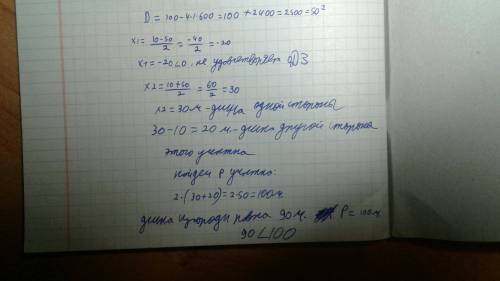 D = 100-4·1·600 = 100 + 2400 = 2500 = 50²
x1 = 10-50/2 = -40/2 = -20
x1 = -20<0, не удовлетворяет ОДЗ
x2 = 10+50/2 = 60/2 = 30
x2 = 30 м - длина одной стороны
30-10 = 20 м - длина другой стороны
этого участка
найдем P участка:
2·(30+20) = 2·50 = 100 м.
длина изгороди равна 90 м. P = 100 м
90<100